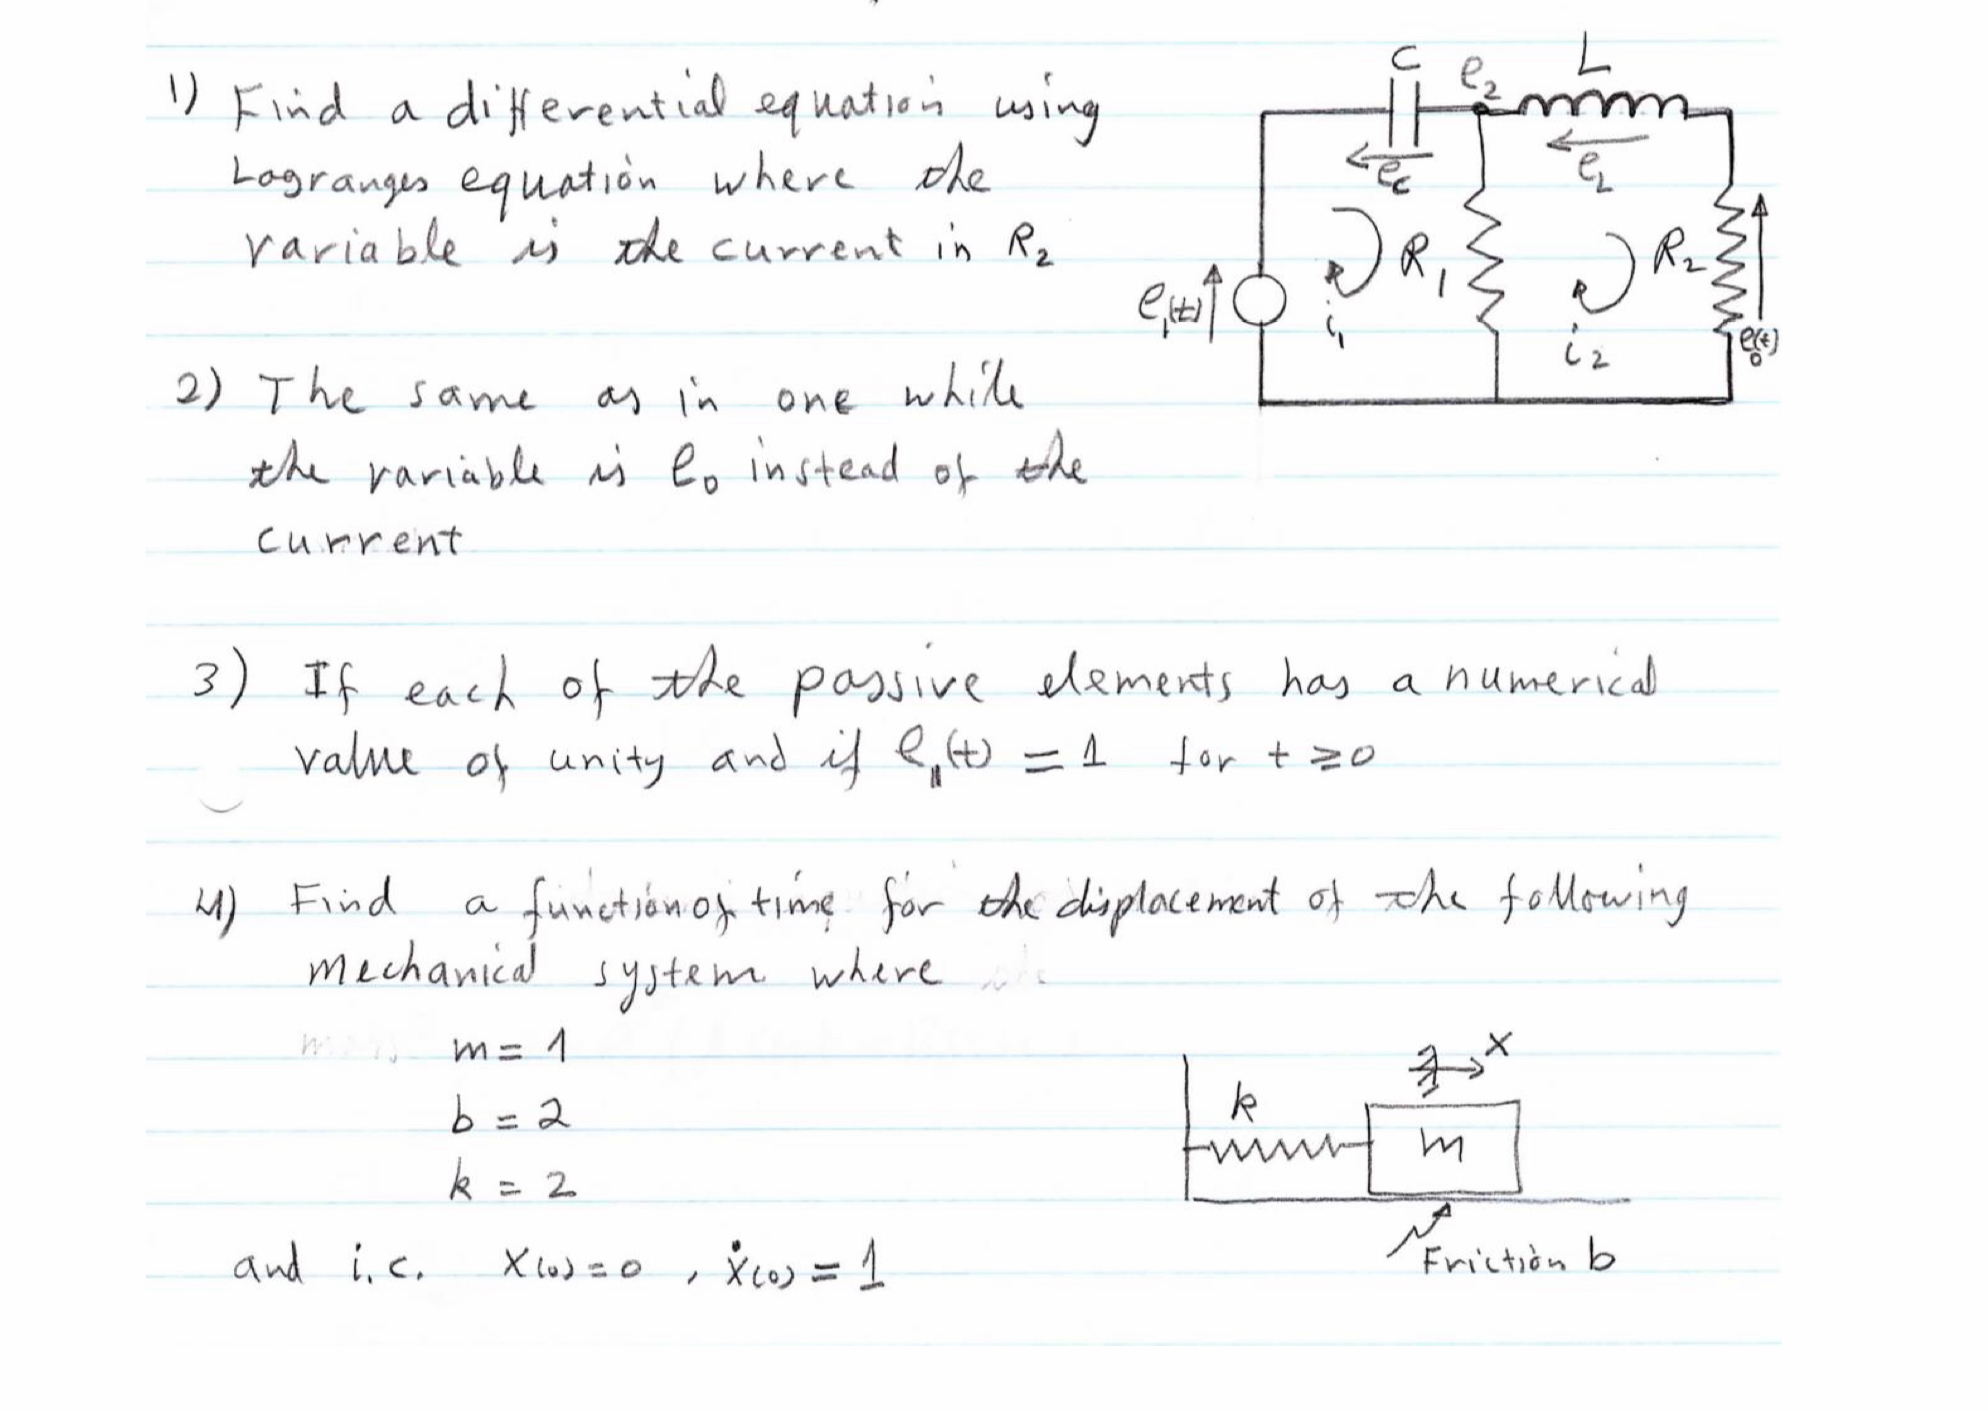 1) Find a differential equation using
Lagranges equation where the
variable is the current in R₂
C
e₂
L
e_c
e_L
R₁
R₂
e₁(t)
i₁
i₂
e₀(t)
2) The same as in one while
the variable is e₀ instead of the
current
3) If each of the passive elements has a numerical
value of unity and if e₁(t) = 1 for t ≥ 0
4) Find a function of time for the displacement of the following
mechanical system where
m = 1
b = 2
k = 2
x
k
m
Friction b
and i.c. x(0) = 0 , ẋ(0) = 1